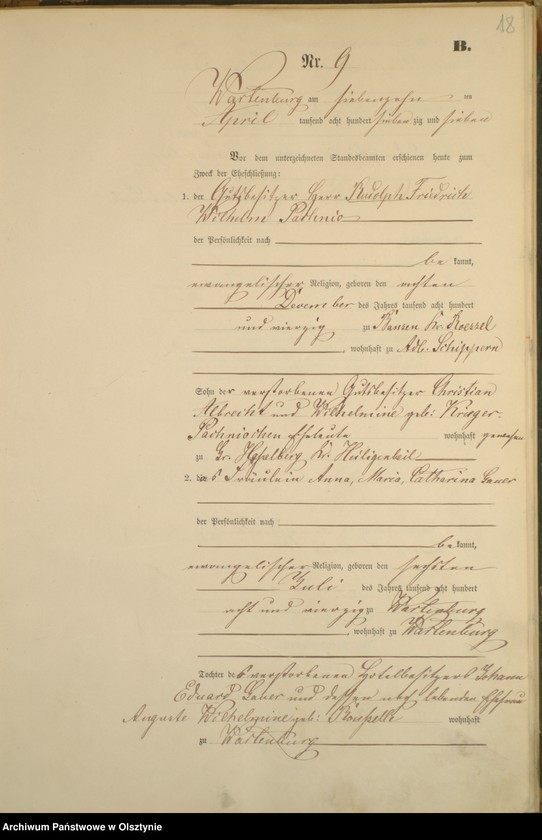 18
B.
Nr. 9
Wartenburg am siebenzehn ten
April tausend acht hundert sieben zig und sieben
Vor dem unterzeichneten Standesbeamten erschienen heute zum
Zweck der Eheschließung:
1. der Gutsbesitzer Herr Rudolph Friedrich
Wilhelm Pachnio
der Persönlichkeit nach
be kannt,
evangelischer Religion, geboren den achten
December des Jahres tausend acht hundert
und vierzig zu Bansen Kr. Roessel
, wohnhaft zu Adl. Schippern
Sohn der verstorbenen Gutsbesitzer Christian
Albrecht und Wilhelmine geb: Krieger-
Pachnioschen Eheleute wohnhaft gewesen
zu Gr. Hasselberg Kr. Heiligenbeil
2. die Fräulein Anna, Maria, Catharina
der Persönlichkeit nach
be kannt,
evangelischer Religion, geboren den sechsten
Juli des Jahres tausend acht hundert
acht und vierzig zu Wartenburg
, wohnhaft zu Wartenburg
Tochter des verstorbenen Hotelbesitzers Johann
Eduard und dessen lebenden Ehefrau
Auguste Wilhelmine geb: wohnhaft
zu Wartenburg
Archiwum Państwowe w Olsztynie